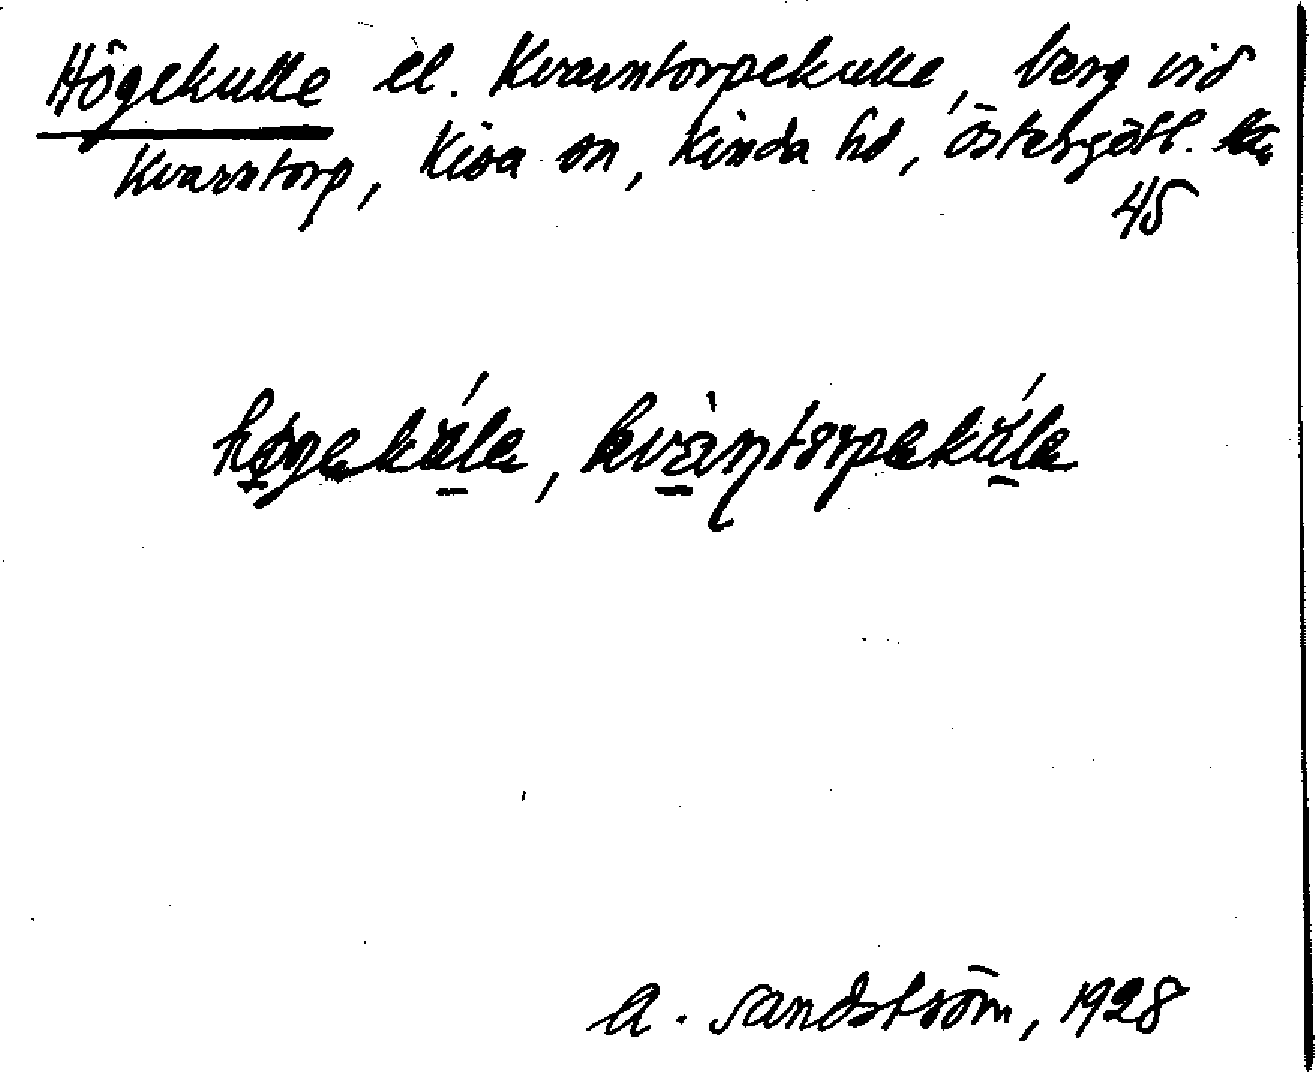 Högekulle el. Kvarntorpekulle, berg vid
Kvarntorp, Kisa sn, Kinda hd, Östergötl. län
45
A. Sandström, 1928